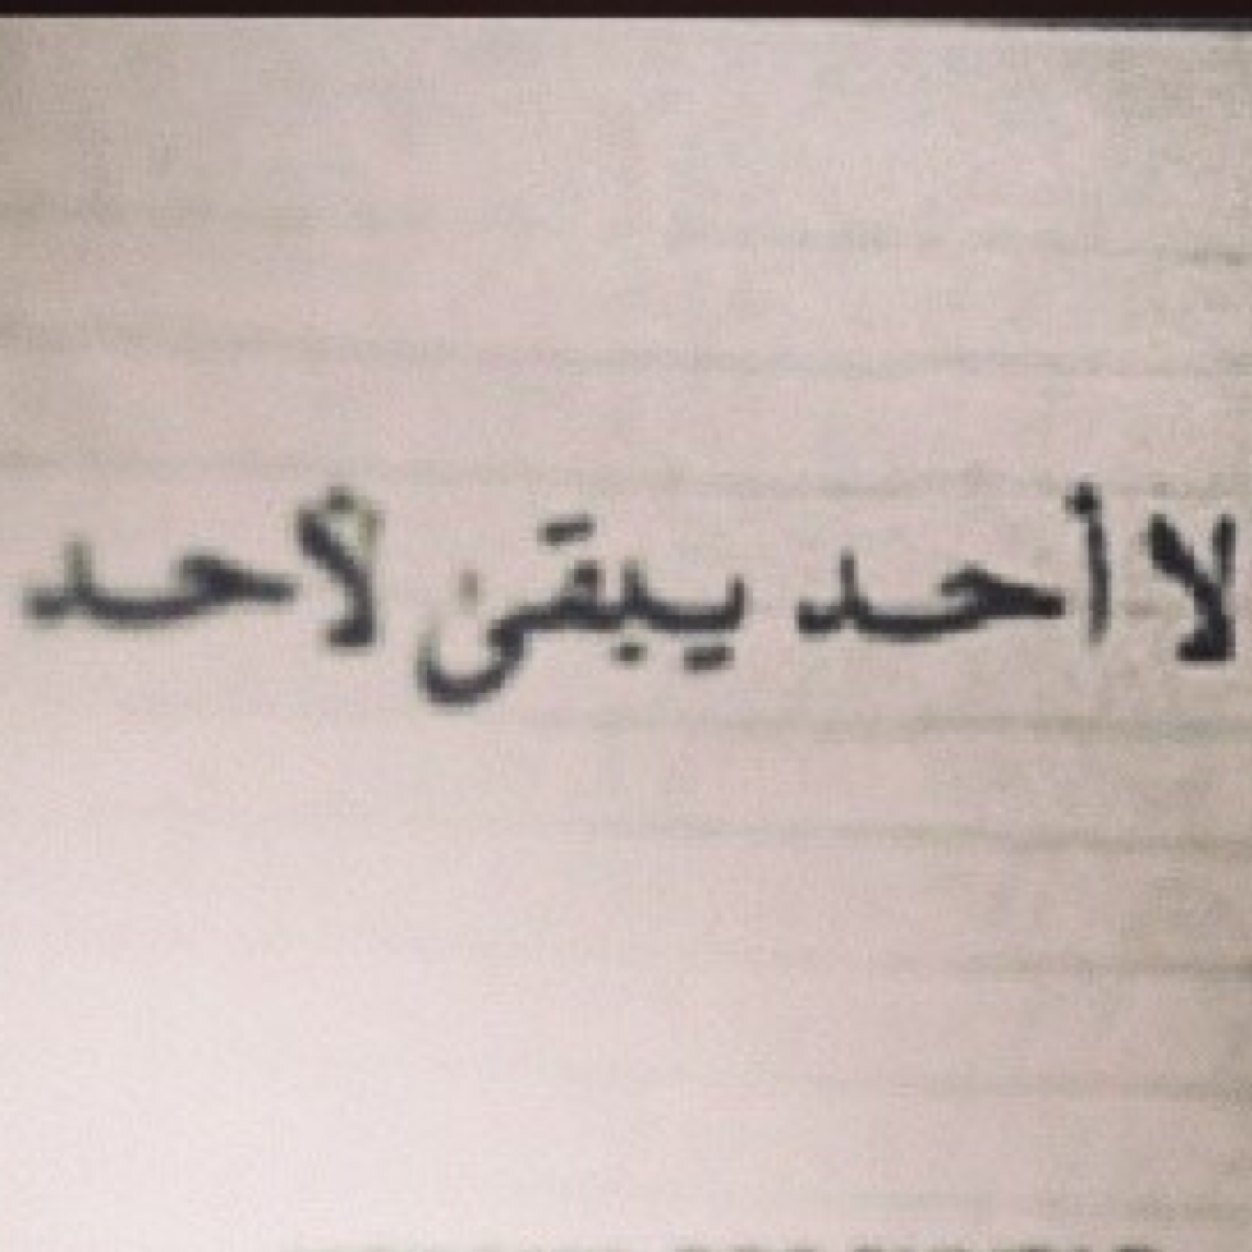 لا أحد يبقى لأحد